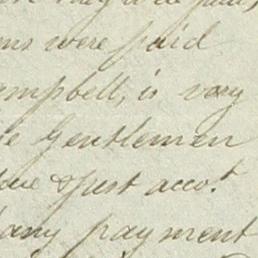 were paid
ampbell, is very
Gentlemen
& just acco.t
any payment